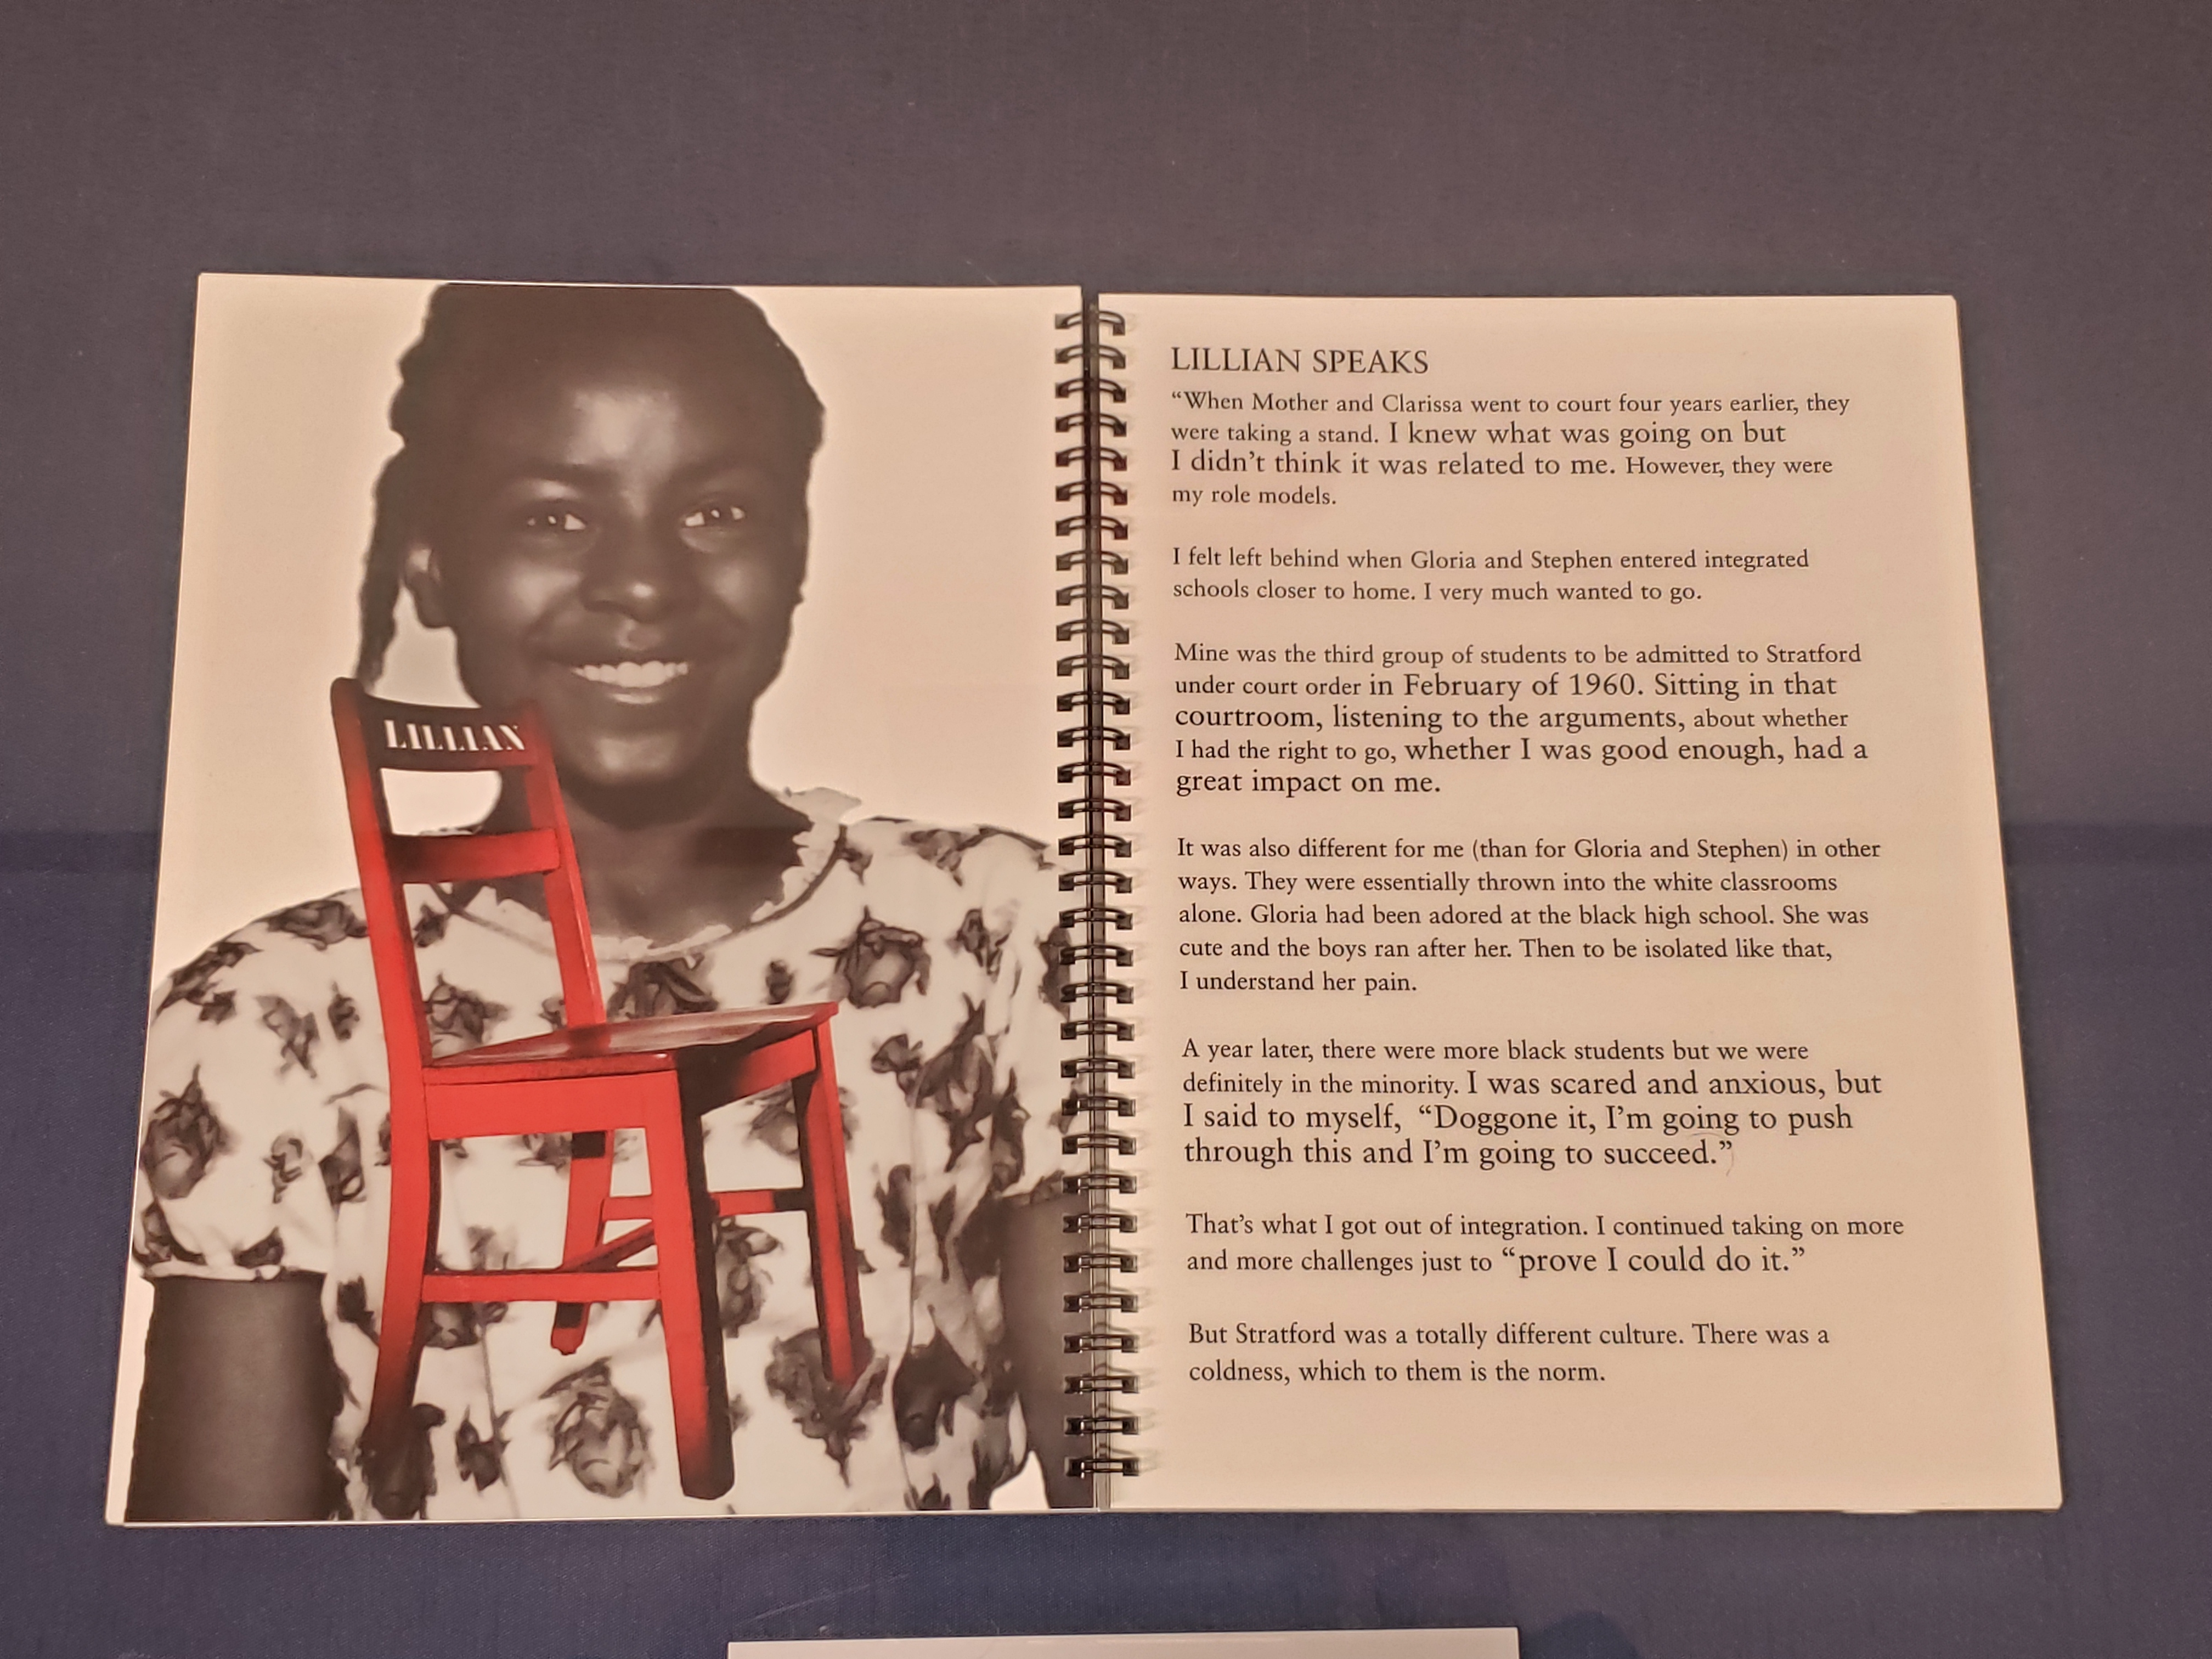 LILLIAN
LILLIAN SPEAKS
“When Mother and Clarissa went to court four years earlier, they
were taking a stand. I knew what was going on but
I didn’t think it was related to me. However, they were
my role models.
I felt left behind when Gloria and Stephen entered integrated
schools closer to home. I very much wanted to go.
Mine was the third group of students to be admitted to Stratford
under court order in February of 1960. Sitting in that
courtroom, listening to the arguments, about whether
I had the right to go, whether I was good enough, had a
great impact on me.
It was also different for me (than for Gloria and Stephen) in other
ways. They were essentially thrown into the white classrooms
alone. Gloria had been adored at the black high school. She was
cute and the boys ran after her. Then to be isolated like that,
I understand her pain.
A year later, there were more black students but we were
definitely in the minority. I was scared and anxious, but
I said to myself, “Doggone it, I’m going to push
through this and I’m going to succeed.”
That’s what I got out of integration. I continued taking on more
and more challenges just to “prove I could do it.”
But Stratford was a totally different culture. There was a
coldness, which to them is the norm.